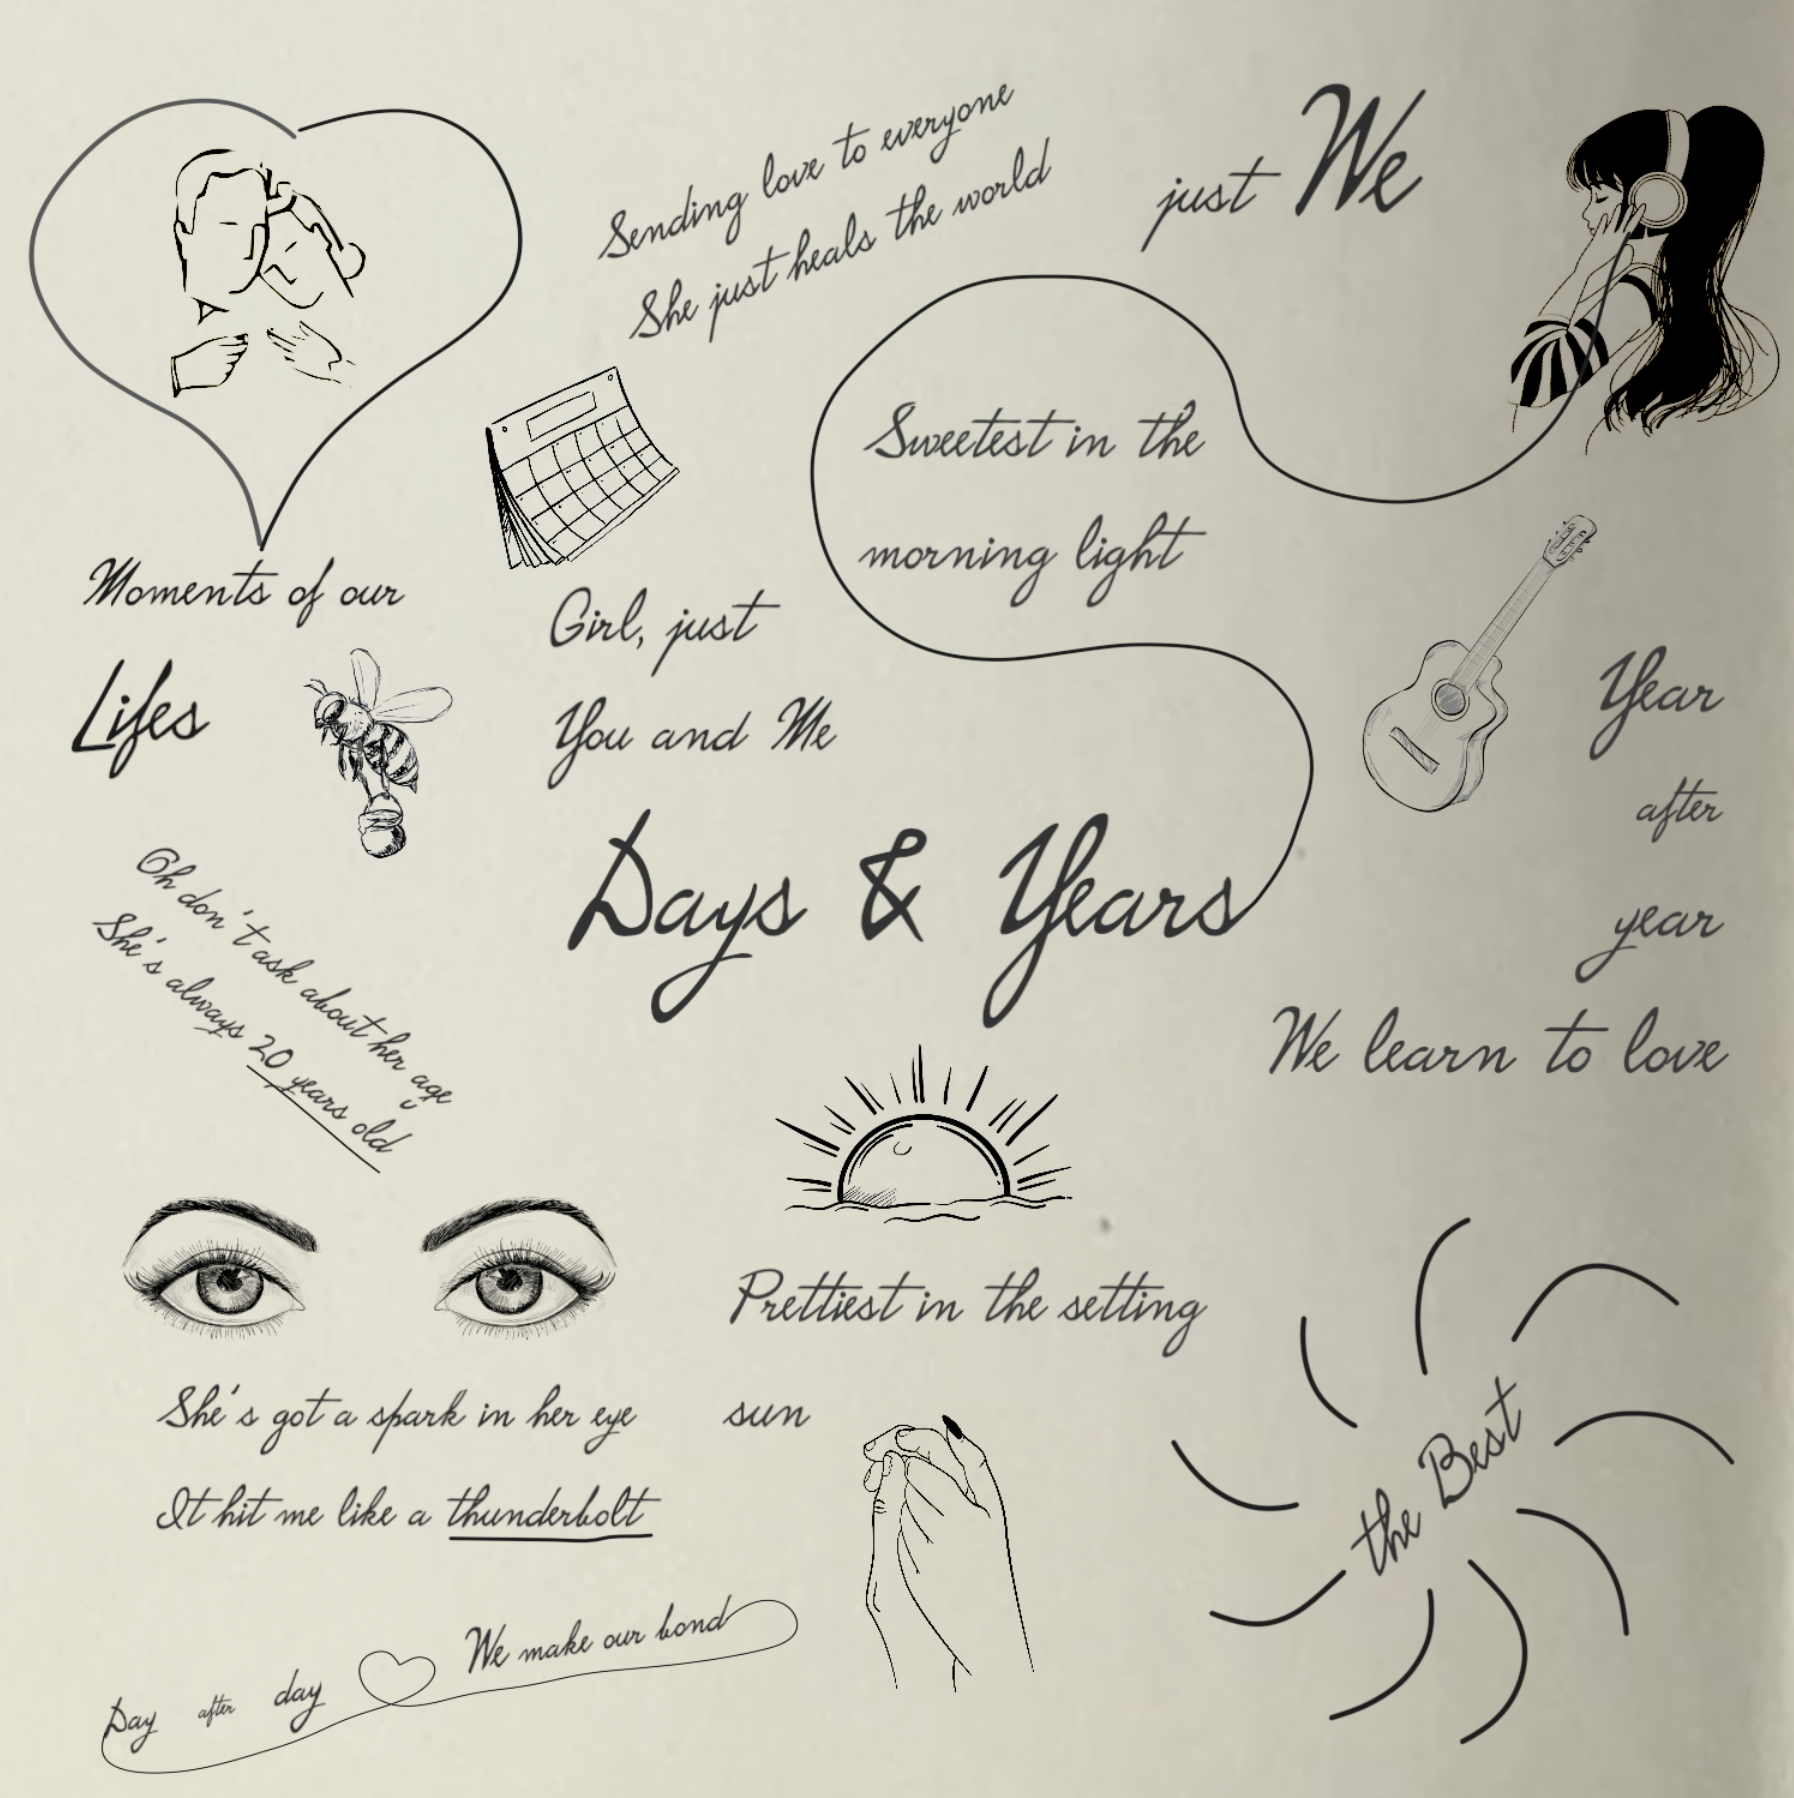 Sending love to everyone
She just heals the world
just We
Sweetest in the
morning light
Moments of our
Lifes
Girl, just
You and Me
Days & Years
Year
after
year
We learn to love
Oh don't ask about her age
She's always 20 years old
Prettiest in the setting
sun
She's got a spark in her eye
It hit me like a thunderbolt
the Best
We make our bond
Day after day